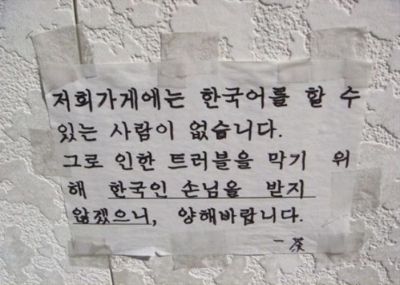 저희가게에는 한국어를 할 수
있는 사람이 없습니다.
그로 인한 트러블을 막기 위
해 한국인 손님을 받지
않겠으니, 양해바랍니다.